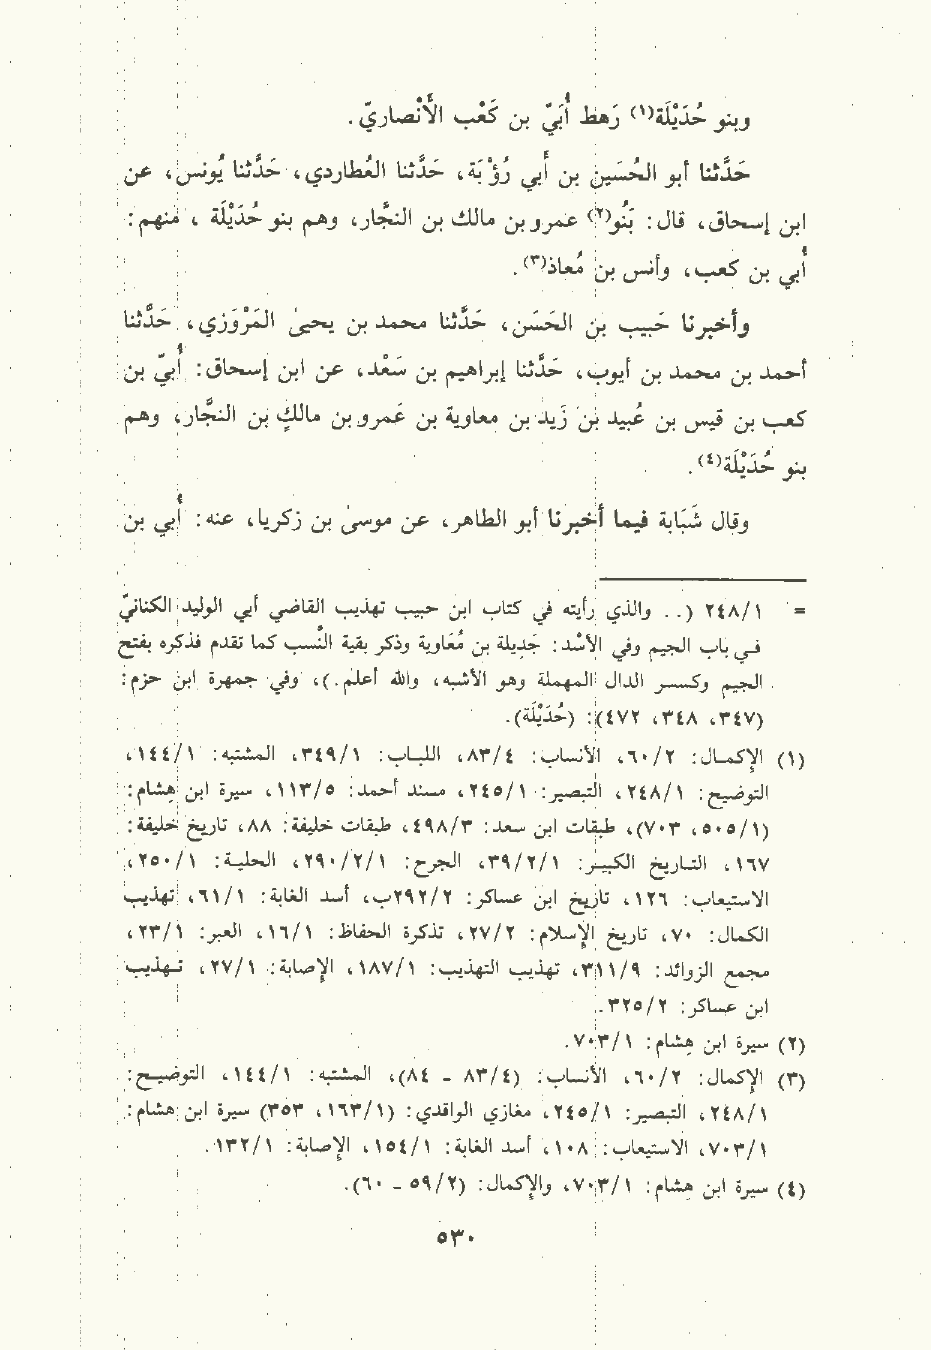 وبنو حُدَيْلَة(١) رَهط أُبَيّ بن كَعْب الأَنْصاريّ.
حَدَّثنا أبو الحُسَين بن أَبي رُؤْبَة، حَدَّثنا العُطاردي، حَدَّثنا يُونس، عن
ابن إسحاق، قال: بَنُو(٢) عمرو بن مالك بن النجَّار، وهم بنو حُدَيْلَة ، منهم:
أُبي بن كعب، وأنس بن مُعاذ(٣).
وأخبرنا حَبيب بن الحَسَن، حَدَّثنا محمد بن يحيىٰ المَرْوَزي، حَدَّثنا
أحمد بن محمد بن أيوب، حَدَّثنا إبراهيم بن سَعْد، عن ابن إسحاق: أُبَيّ بن
كعب بن قيس بن عُبيد بن زَيد بن معاوية بن عَمرو بن مالكِ بن النجَّار، وهم
بنو حُدَيْلَة(٤).
وقال شَبَابة فيما أخبرنا أبو الطاهر، عن موسىٰ بن زكريا، عنه: أُبي بن
= ٢٤٨/١ (.. والذي رأيته في كتاب ابن حبيب تهذيب القاضي أبي الوليد الكنانيّ
في باب الجيم وفي الأسْد: جَدِيلة بن مُعَاوية وذكر بقية النَّسب كما تقدم فذكره بفتح
الجيم وكسر الدال المهملة وهو الأشبه، والله أعلم.)، وفي جمهرة ابن حزم:
(٣٤٧، ٣٤٨، ٤٧٢): (حُدَيْلَة).
(١) الإكمال: ٦٠/٢، الأنساب: ٨٣/٤، اللباب: ٣٤٩/١، المشتبه: ١٤٤/١،
التوضيح: ٢٤٨/١، التبصير: ٢٤٥/١، مسند أحمد: ١١٣/٥، سيرة ابن هِشام:
(٥٠٥/١، ٧٠٣)، طبقات ابن سعد: ٤٩٨/٣، طبقات خليفة: ٨٨، تاريخ خليفة:
١٦٧، التاريخ الكبير: ٣٩/٢/١، الجرح: ٢٩٠/٢/١، الحلية: ٢٥٠/١،
الاستيعاب: ١٢٦، تاريخ ابن عساكر: ٢٩٢/٢ب، أسد الغابة: ٦١/١، تهذيب
الكمال: ٧٠، تاريخ الإسلام: ٢٧/٢، تذكرة الحفاظ: ١٦/١، العبر: ٢٣/١،
مجمع الزوائد: ٣١١/٩، تهذيب التهذيب: ١٨٧/١، الإصابة: ٢٧/١، تهذيب
ابن عساكر: ٣٢٥/٢.
(٢) سيرة ابن هِشام: ٧٠٣/١.
(٣) الإكمال: ٦٠/٢، الأنساب: (٨٣/٤ - ٨٤)، المشتبه: ١٤٤/١، التوضيح:
٢٤٨/١، التبصير: ٢٤٥/١، مغازي الواقدي: (١٦٣/١، ٣٥٣) سيرة ابن هشام:
٧٠٣/١، الاستيعاب: ١٠٨، أسد الغابة: ١٥٤/١، الإصابة: ١٣٢/١.
(٤) سيرة ابن هِشام: ٧٠٣/١، والإكمال: (٥٩/٢ - ٦٠).
٥٣٠